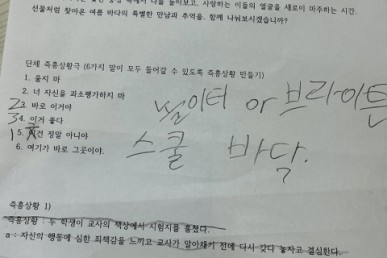 선물처럼 찾아온 여름 바다의 특별한 만남과 추억을, 함께 나눠보시겠습니까?
단체 즉흥상황극 (6가지 말이 모두 들어갈 수 있도록 즉흥상황 만들기)
1. 울지 마
2. 너 자신을 과소평가하지 마
2 3. 바로 이거야
3 4. 이거 좋다
1 5. 이건 정말 아니야
6. 여기가 바로 그곳이야.
씰이터 or 브라이튼
스쿨 바닥.
즉흥상황 1)
즉흥상황 : 두 학생이 교사의 책상에서 시험지를 훔쳤다.
a : 자신의 행동에 심한 죄책감을 느끼고 교사가 알아채기 전에 다시 갖다 놓자고 결심한다.